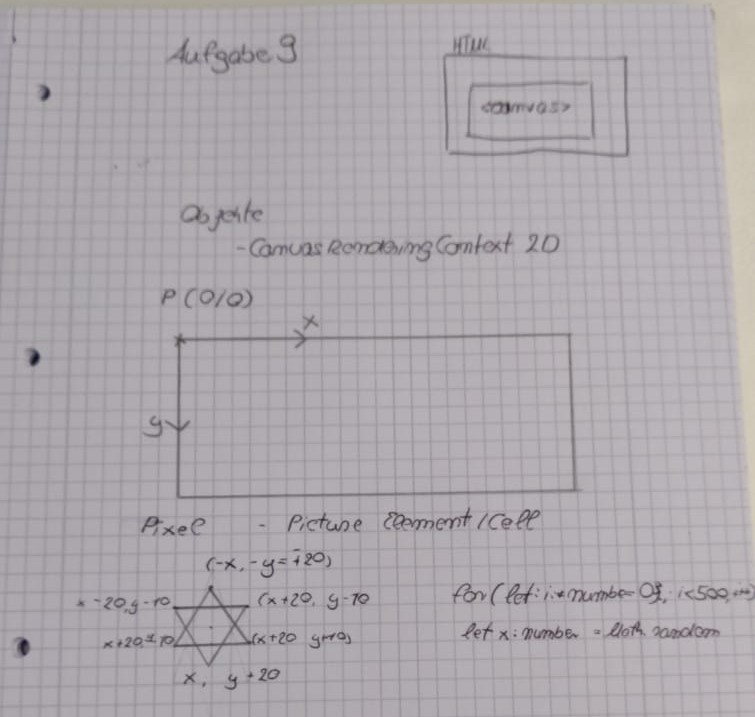 Aufgabe 9
HTML
<canvas>
Objekte
- CanvasRenderingContext 2D
P (0/0)
x
y
Pixel - Picture Element / Cell
(-x, -y = +20)
x -20, y -10
(x+20, y-10
x+20, ± 10
(x+20 y+10)
x, y +20
for (let: i: number 0; i<500,
let x: number = Math random